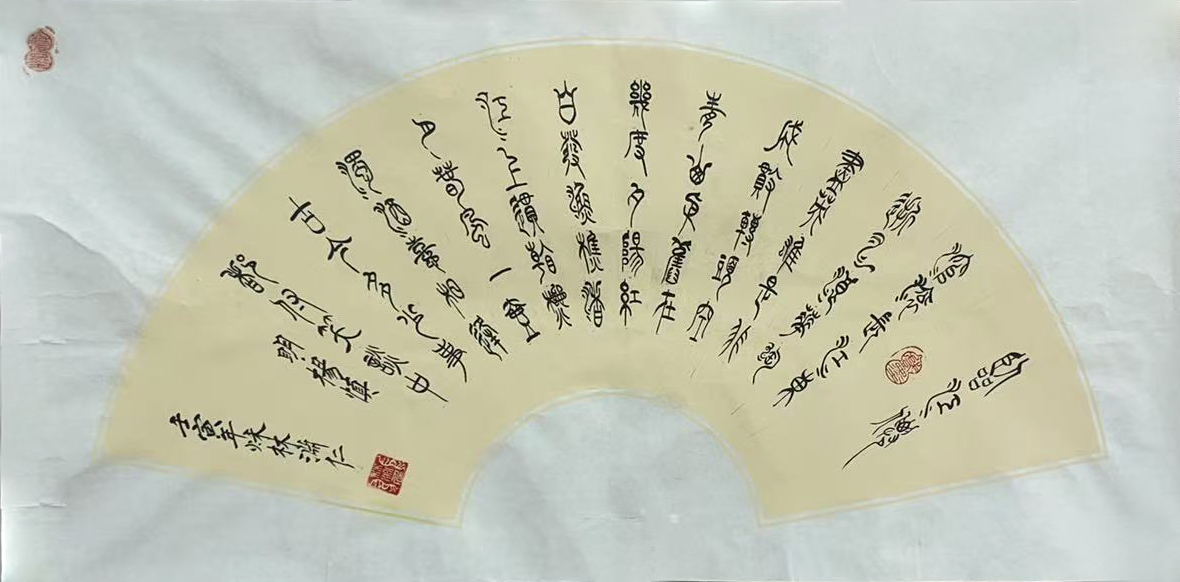 臨江僊
滾滾長江東
逝水浪花淘
盡英雄是非
成敗轉頭空
青山依舊在
幾度夕陽紅
白發漁樵渚
江上慣看秋
月春風一壺
濁酒喜相逢
古今多少事
都付笑談中
明楊慎
壬寅年